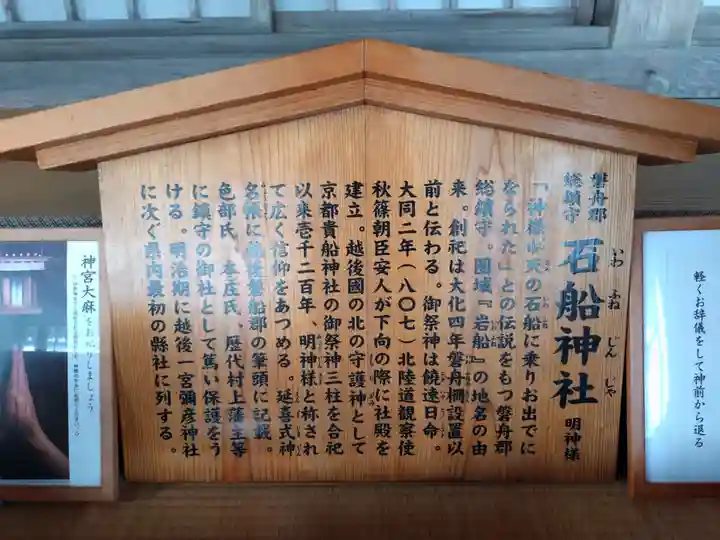 軽くお辞儀をして神前から退る
磐舟郡
総鎮守
石船神社
いわふねじんじゃ
明神様
「神様が天の石船に乗りお出でに
なられた」との伝説をもつ磐舟郡
総鎮守。國域『岩船』の地名の由
来。創祀は大化四年磐舟柵設置以
前と伝わる。御祭神は饒速日命。
大同二年(八〇七)北陸道観察使
秋篠朝臣安人が下向の際に社殿を
建立。越後國の北の守護神として
京都貴船神社の御祭神三柱を合祀
以来壱千二百年、明神様と称され
て広く信仰をあつめる。延喜式神
名帳に越後磐船郡の筆頭に記載。
色部氏、本庄氏、歴代村上藩主等
に鎮守の御社として篤い保護をう
ける。明治期に越後一宮彌彦神社
に次ぐ県内最初の縣社に列する。
神宮大麻をお祀りしましょう